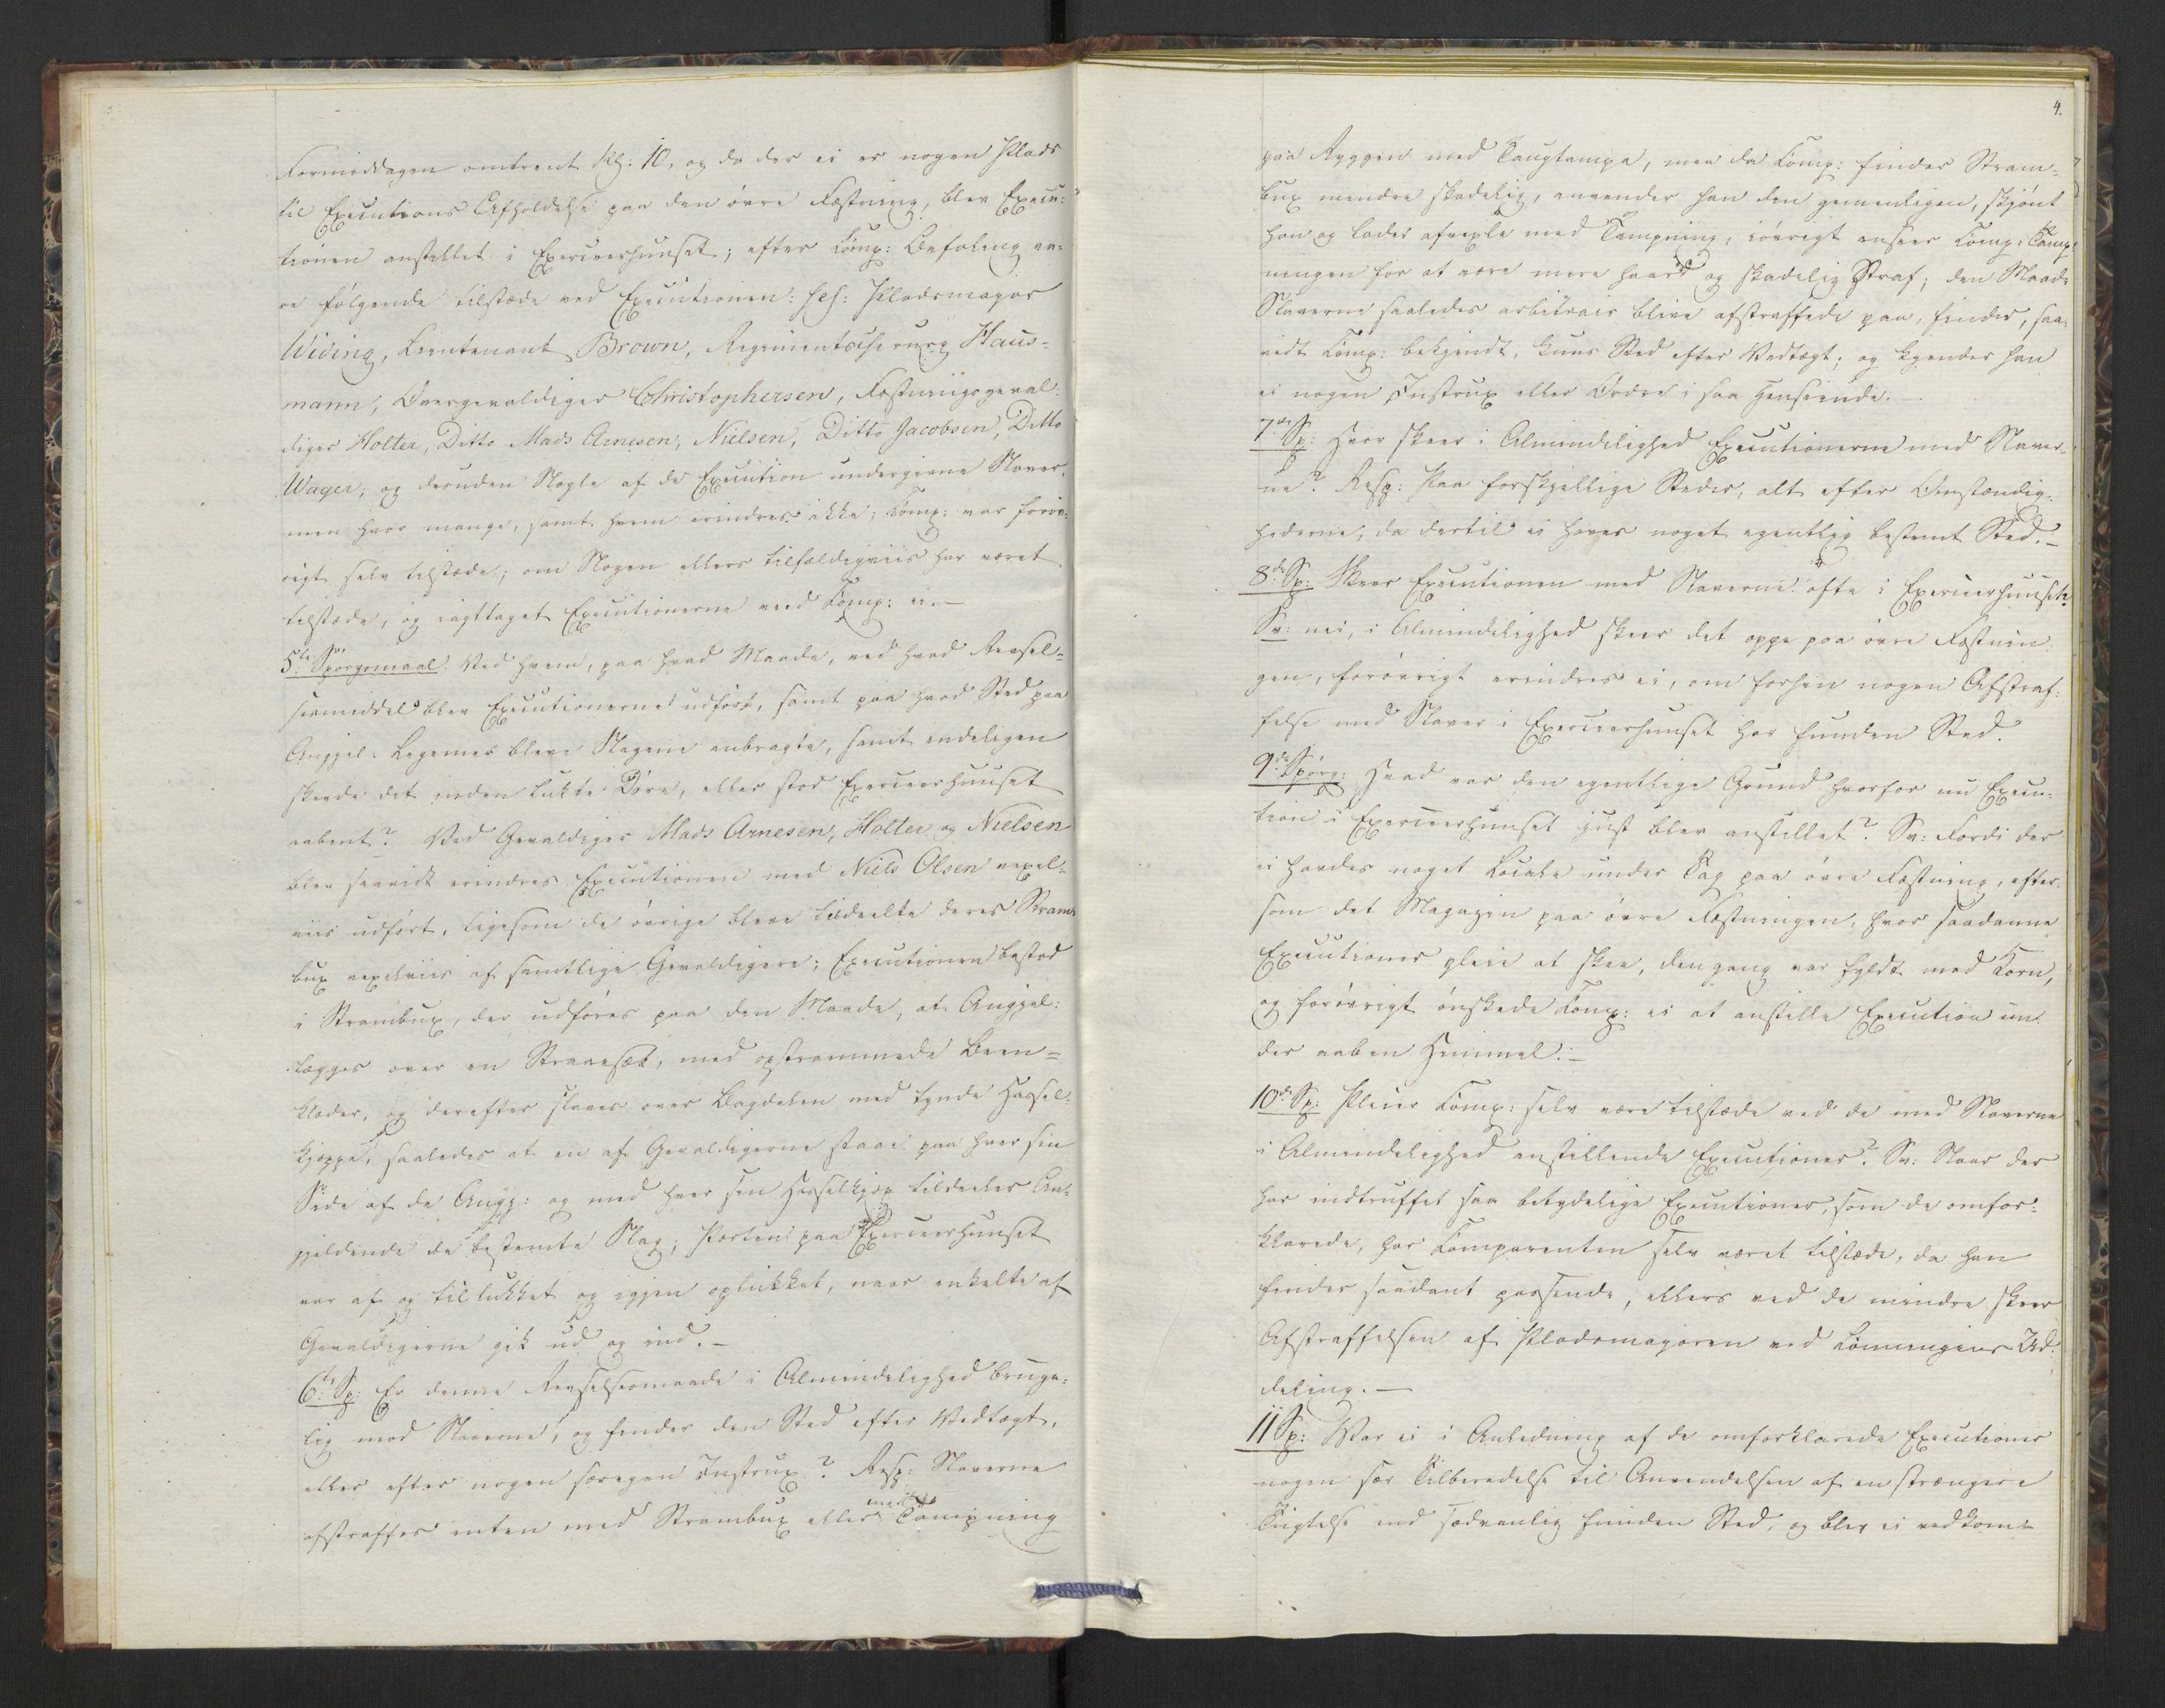 Formiddagen omtrent Kl: 10, og da der ei er nogen Plads
til Executions Afholdelse paa den övre Fæstning, blev Execu-
tionen anstillet i Exerceerhuuset; efter Comp: Befaling va-
re følgende tilstæde ved Executionen: Hs: Pladsmajor
Wiving, Lieutenant Brown, Regimentschirurg Haus-
mann, Overgevaldiger Christophersen, Fæstningsgeval-
diger Holter, Ditto Mads Arnesen, Nielsen, Ditto Jacobsen, Ditto
Wager, og desuden Nogle af de Execution undergivne Slaver,
men hvor mange, samt hvem erindres ikke; Comp: var forøv-
rigt selv tilstæde; om Nogen ellers tilfældigviis har været
tilstæde, og iagttaget Executionerne veed Comp: ei. —
5te Spörgsmaal. Ved hvem, paa hvad Maade, ved hvad Revsel-
sesmiddel blev Executionerne udført, samt paa hvad Sted paa
Angjel: Legemer bleve Slagene anbragte, samt endeligen
skeede det inden lukte Døre, eller stod Exerceerhuuset
aabent? Ved Gevaldiger Mads Arnesen, Holter og Nielsen
blev saavidt erindres Executionen med Niels Olsen vexel-
viis udført, ligesom de øvrige bleve tildeelte deres Stram-
bux vexelviis af samtlige Gevaldigere; Executionen bestod
i Strambux, der udføres paa den Maade, at Angjel:
lægges over en Straasæk, med opstrammede Been-
klæder, og derefter slaaes over Bagdelen med tynde Hassel-
kjæppe, saaledes at en af Gevaldigerne staae paa hver sin
Side af de Angj: og med hver sin Hasselkjæp tildeeler An-
gjeldende de bestemte Slag; Porten paa Exerceerhuuset
var af og til lukket og igjen oplukket, naar enkelte af
Gevaldigerne gik ud og ind. —
6te Sp: Er denne Revselsesmaade i Almindelighed bruge-
lig mod Slaverne, og finder den Sted efter Vedtægt,
eller efter nogen særegen Instrux? Resp: Slaverne
afstraffes enten med Strambux eller med Tampning
4.
paa Ryggen med Tougtampe, men da Comp: finder Stram-
bux mindre skadelig, anvender han den gemenligen, skjönt
han og lader afvexle med Tampning, iövrigt anseer Comp: Tamp-
ningen for at være mere haard og skadelig Straf; den Maade
Slaverne saaledes arbitrair blive afstraffede paa, finder, saa-
vidt Comp: bekjendt, kuns Sted efter Vedtægt; og kjender han
ei nogen Instrux eller Ordre i saa Henseende. —
7de Sp: Hvor skeer i Almindelighed Executionerne med Slaver-
ne? Resp: Paa forskjellige Steder, alt efter Omstændig-
hederne, da dertil ei haves noget egentlig bestemt Sted. —
8de Sp: Skeer Executionen med Slaverne ofte i Exerceerhuuset?
Sv: nei, i Almindelighed skeer det oppe paa övre Fæstnin-
gen, forövrigt erindres ei, om forhen nogen Afstraf-
felse med Slaver i Exerceerhuuset har funden Sted.
9de Spörg: Hvad var den egentlige Grund hvorfor nu Execu-
tion i Exerceerhuuset just blev anstillet? Sv: Fordi der
ei havdes noget Locale under Tag paa övre Fæstning, efter-
som det Magazin paa övre Fæstningen, hvor saadanne
Executioner pleie at skee, dengang var fyldt med Korn,
og forövrigt önskede Comp: ei at anstille Execution un-
der aaben Himmel. —
10de Sp: Pleier Comp: selv være tilstæde ved de med Slaverne
i Almindelighed anstillende Executioner? Sv: Naar der
har indtruffet saa betydelige Executioner, som de omfor-
klarede, har Comparenten selv været tilstæde, da han
finder saadant passende, ellers ved de mindre skeer
Afstraffelsen af Pladsmajoren ved Lønningens Ud-
deling. —
11 Sp: Var ei i Anledning af de omforklarede Executioner
nogen sær Tilberedelse til Anvendelsen af en strængere
Tugtelse end sædvanlig funden Sted, og blev ei vedkom-